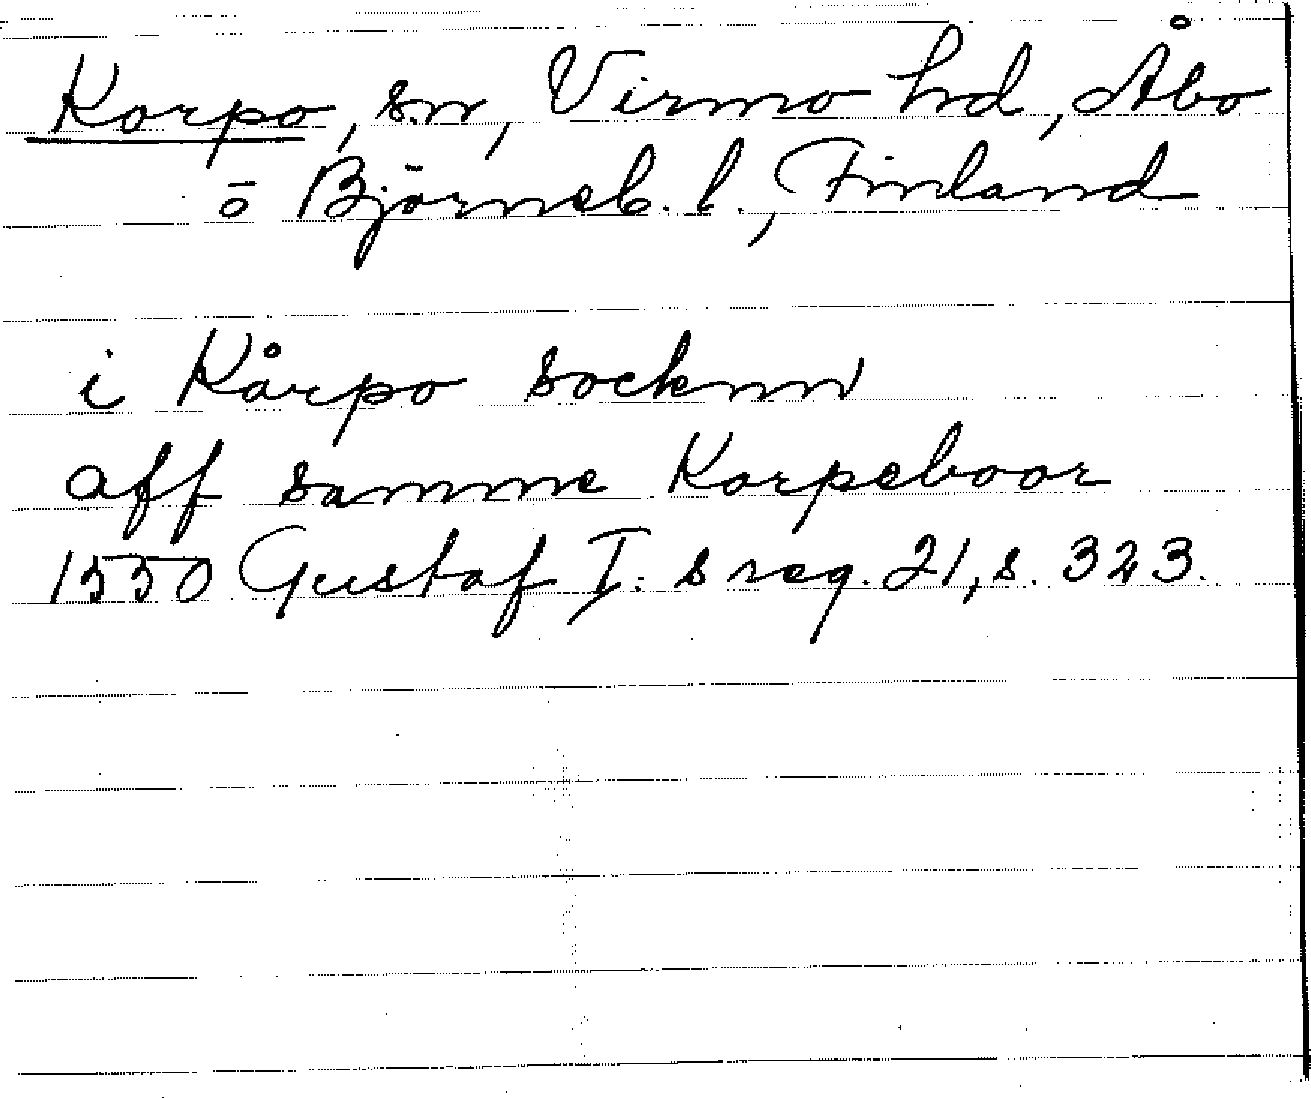 Korpo, sn, Virmo hd, Åbo
o Björneb. l., Finland
i Kårpo socknn
aff samme Korpeboor
1550 Gustaf I:s reg. 21, s. 323.